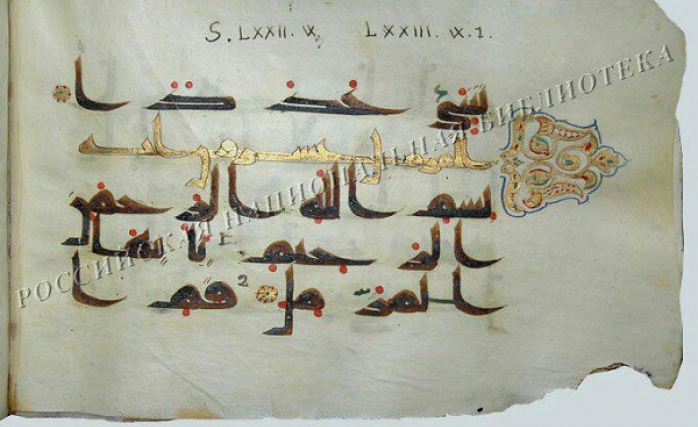 S. LXXII. v. LXXIII. v. 1.
شى عددا
بسم الله الرحمن
الرحيم يايها
المزمل 2 قم ا
РОССИЙСКАЯ НАЦИОНАЛЬНАЯ БИБЛИОТЕКА